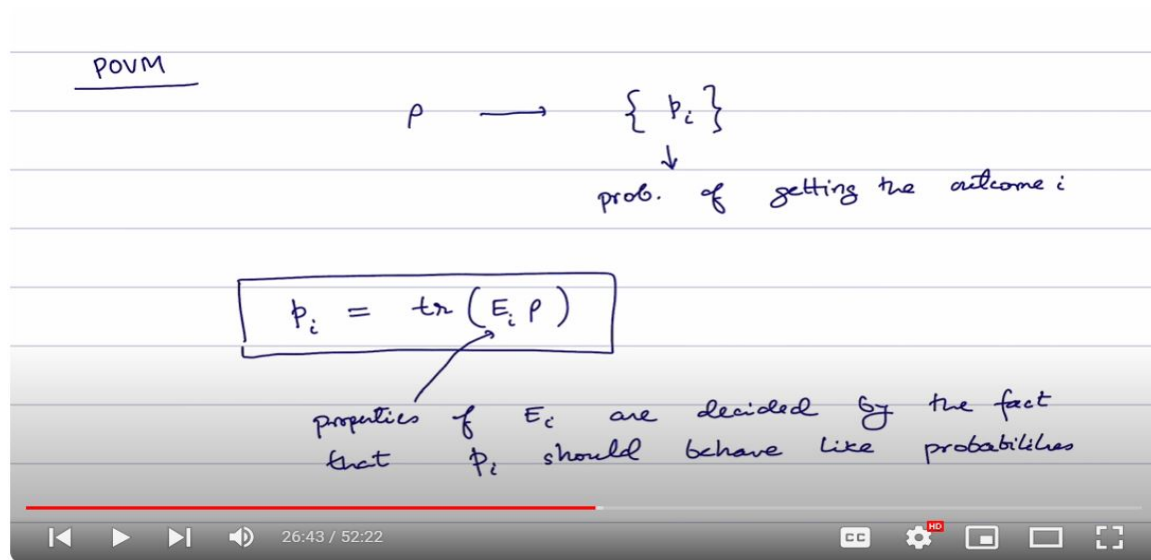 POVM
ρ → { p_i }
↓
prob. of getting the outcome i
p_i = tr ( E_i ρ )
properties of E_i are decided by the fact
that p_i should behave like probabilities
26:43 / 52:22
CC
HD